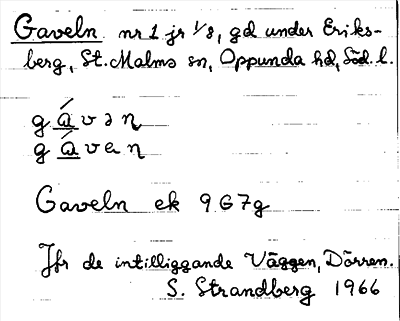 Gaveln nr 1 jr 1/8, gd under Eriks-
berg, St. Malms sn, Oppunda hd, Söd. l.
gávəɳ
gávaɳ
Gaveln ek 9G7g
Jfr de intilliggande Väggen, Dörren.
S. Strandberg 1966